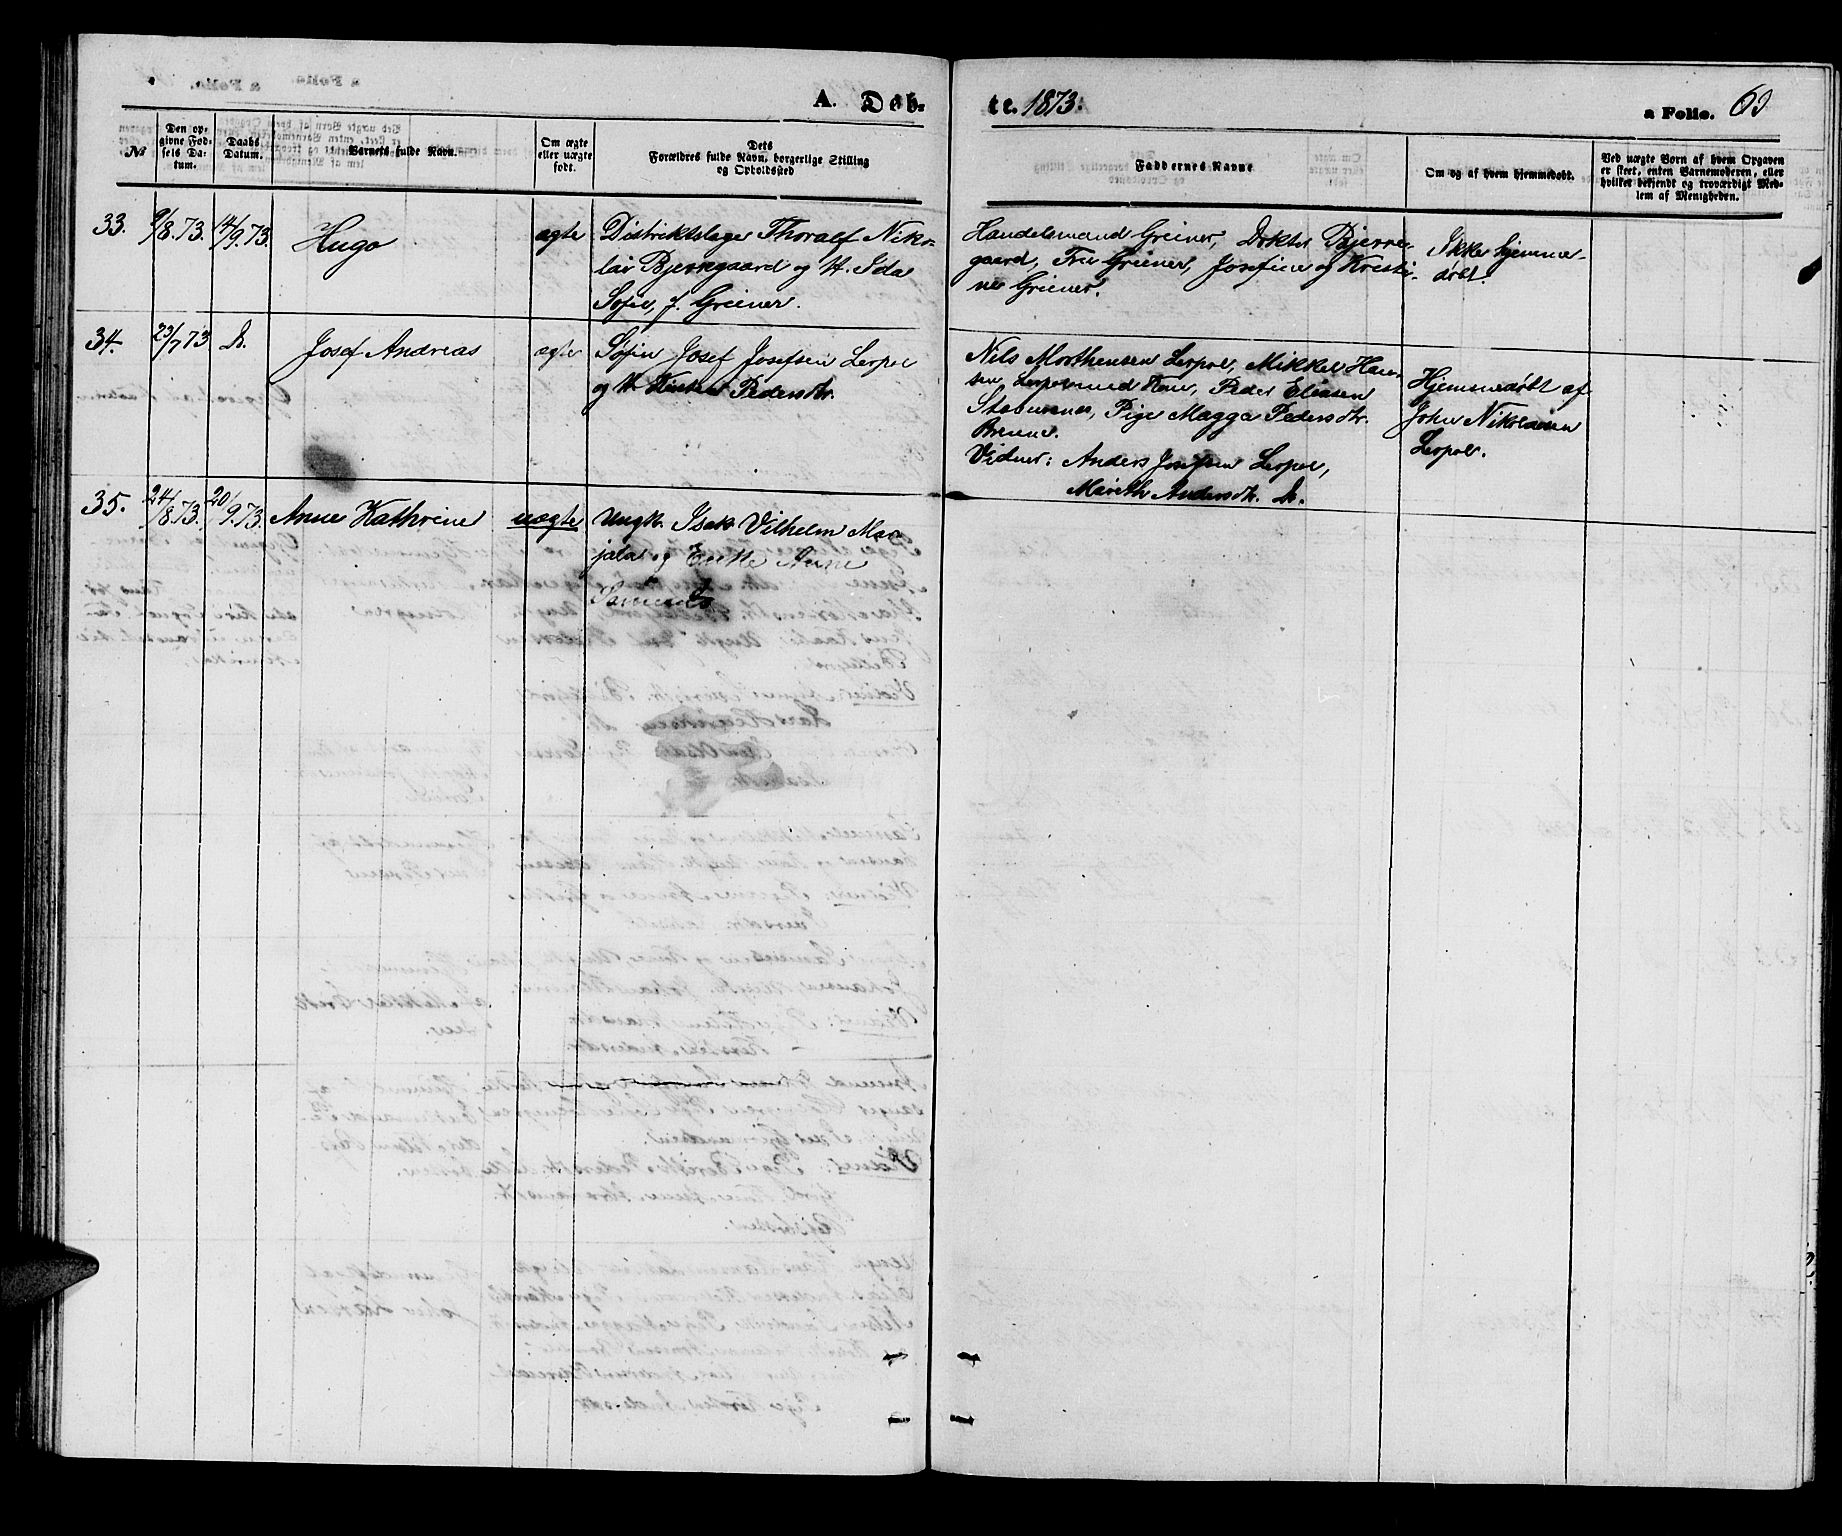 A. Døb-
te. 1873.
a Folio. 63
№
Den op-
givne Fød-
sels Da-
tum.
Daabs
Datum.
Barnets fulde Navn.
Om ægte
eller uægte
født.
Dets
Forældres fulde Navn, borgerlige Stilling
og Opholdssted
Faddernes Navne
Om og af hvem hjemmedøbt.
Ved uægte Børn af hvem Opgaven
er skeet, enten Barnemoderen, eller
hvilket bekjendt og troværdigt Med-
lem af Menigheden.
33. 9/8.73. 14/9.73. Hugo ægte
Distriktslæge Thoralf Niko-
lai Bjerregaard og H. Ida
Sofie, f. Greiner.
Handelsmand Greiner, Doktor Bjerre-
gaard, Fru Greiner, Josefine og Kristi-
ne Greiner.
Ikke hjemme-
døbt.
34. 23/7 73 Josef Andreas ægte
Søfin Josef Josefsen Lerpol
og H. Pedersdtr.
Nils Morthensen Lerpol, Mikkel Han-
sen Lerpol med Kone, Peder Eliasen
Stabursnes, Pige Magga Pedersdtr.
Vidner: Anders Josefsen Lerpol,
Mareth Andersdtr. do.
Hjemmedøbt af
John Nikolaisen
Lerpol.
35. 24/8.73. 20/9.73. Anne Kathrine uægte
Ungk. Isak Vilhelm Mar-
jala og Enke Anne